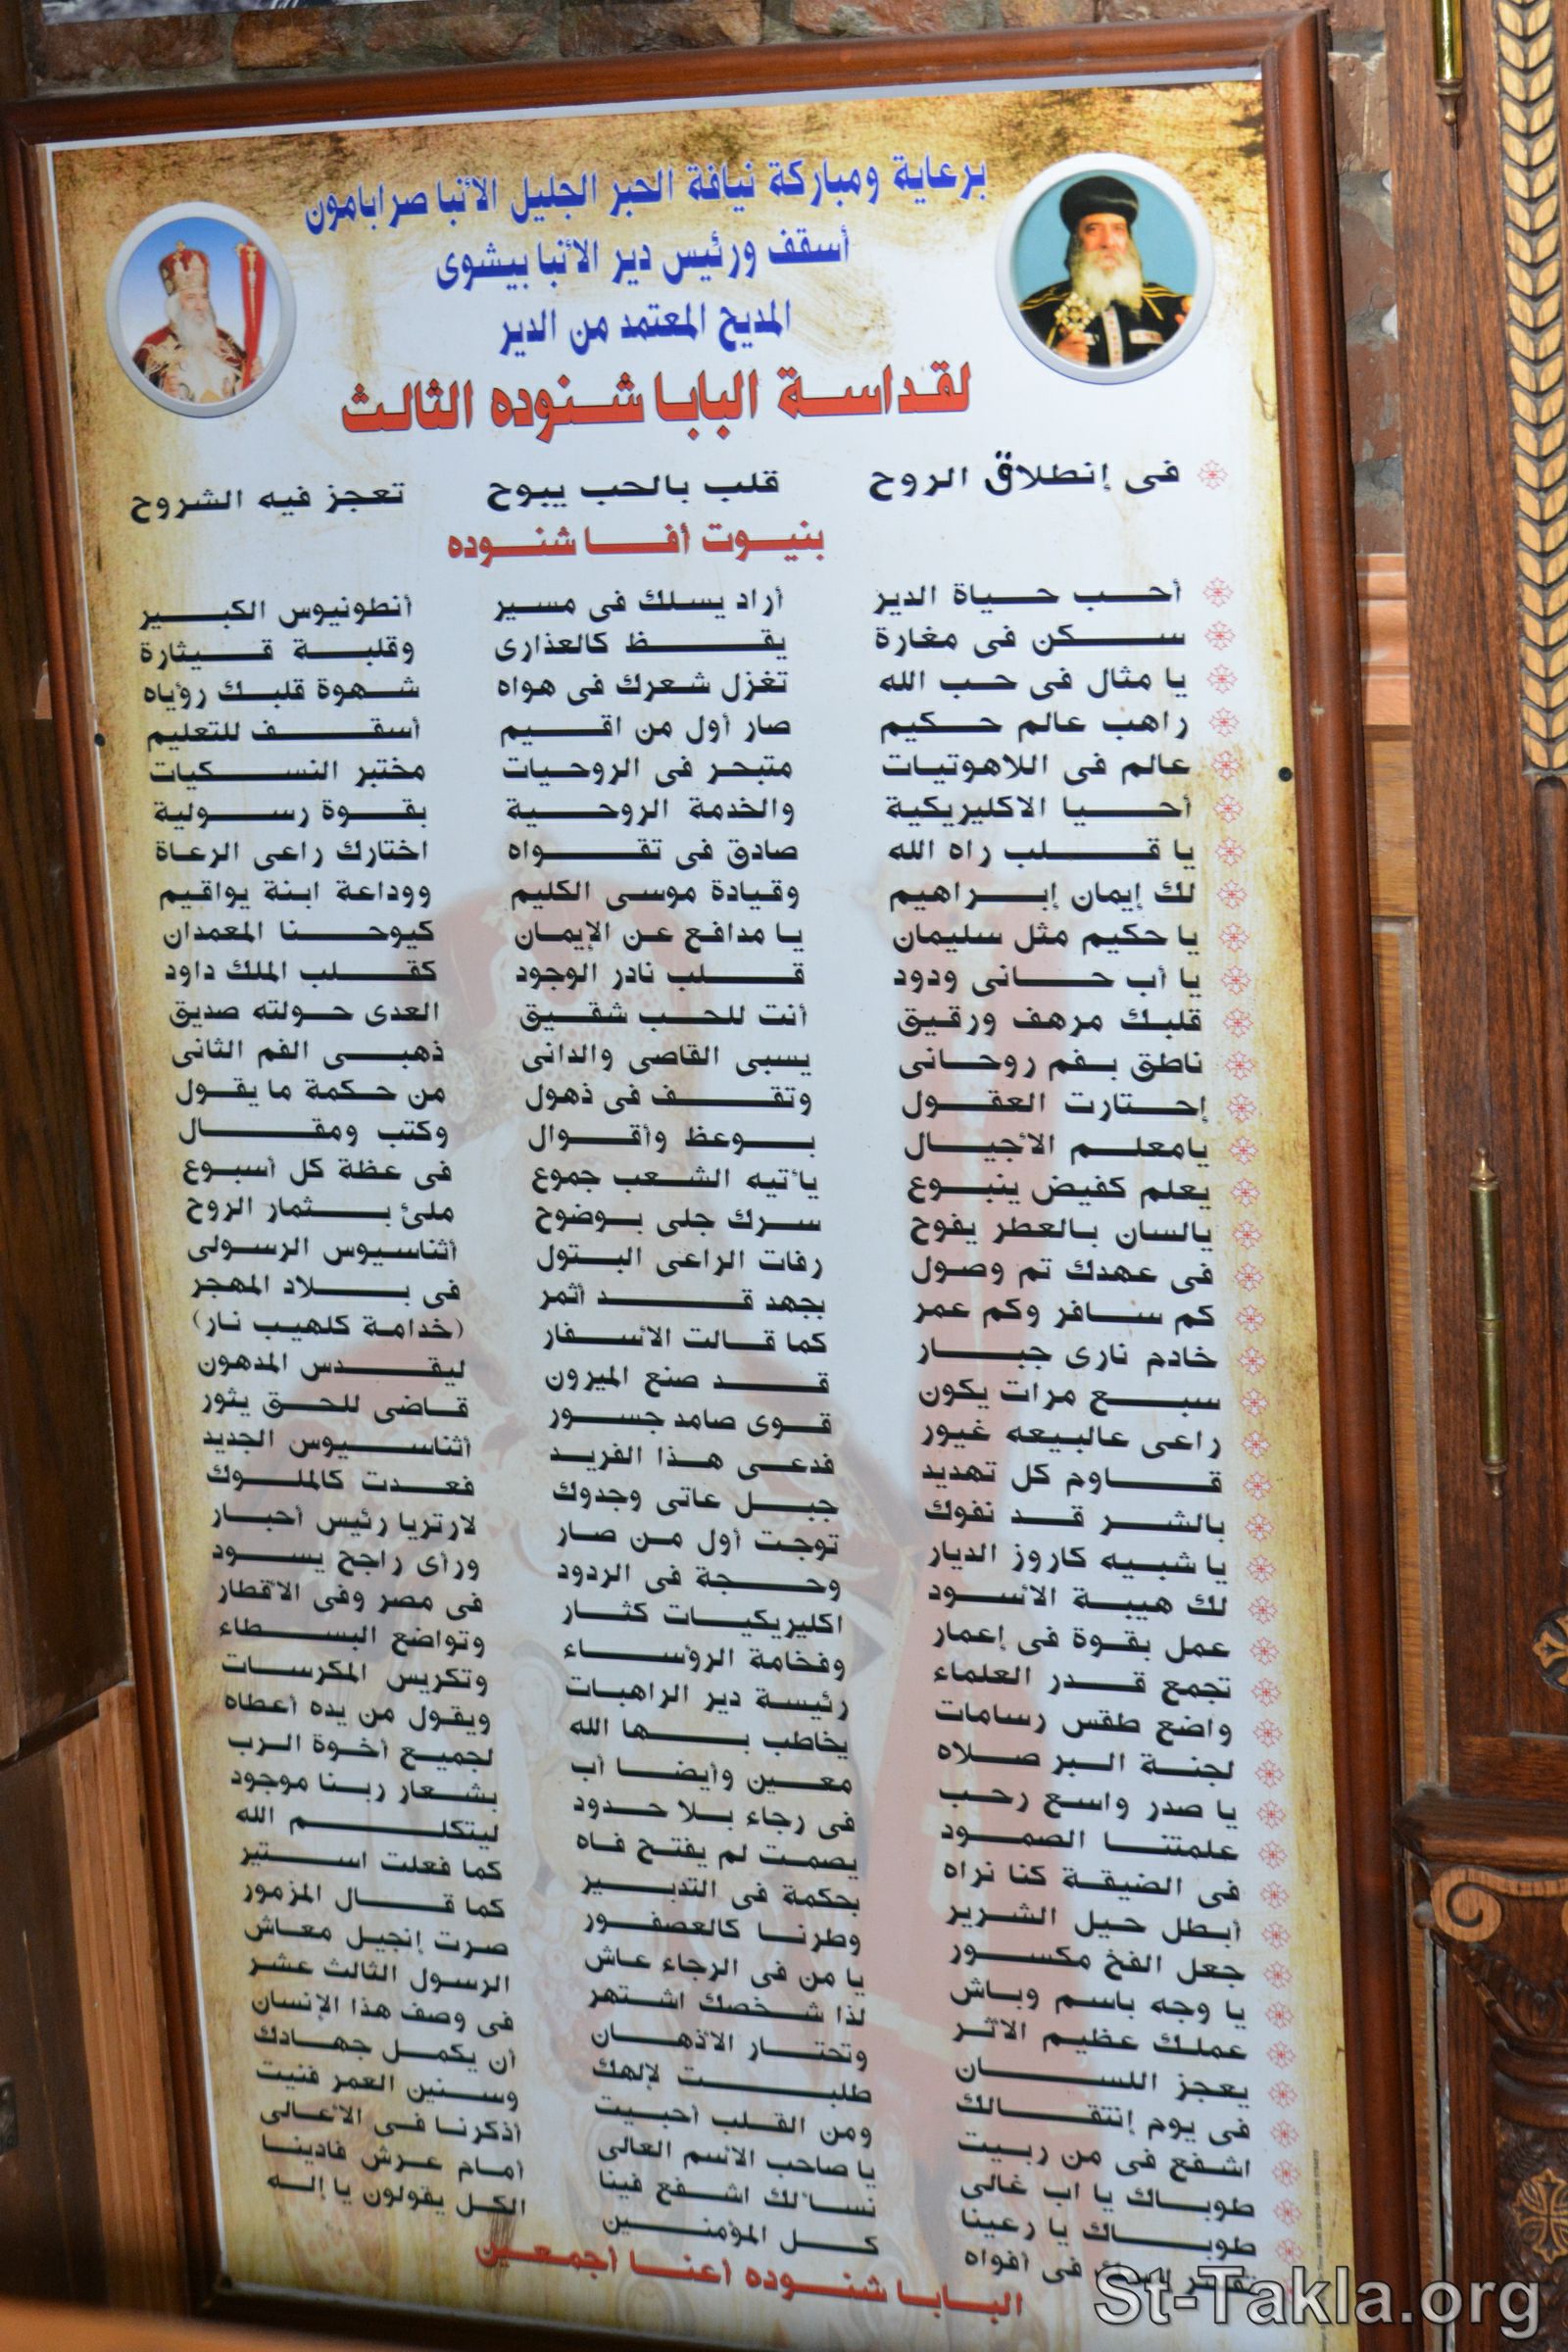 برعاية ومباركة نيافة الحبر الجليل الأنبا صرابامون
أسقف ورئيس دير الأنبا بيشوى
المديح المعتمد من الدير
لقداسة البابا شنوده الثالث
فى إنطلاق الروح قلب بالحب يبوح تعجز فيه الشروح
بنيوت أفا شنوده
أحب حياة الدير أراد يسلك فى مسير أنطونيوس الكبير
سكن فى مغارة يقظ كالعذارى وقلبة قيثارة
يا مثال فى حب الله تغزل شعرك فى هواه شهوة قلبك رؤياه
راهب عالم حكيم صار أول من اقيم أسقف للتعليم
عالم فى اللاهوتيات متبحر فى الروحيات مختبر النسكيات
أحيا الاكليريكية والخدمة الروحية بقوة رسولية
يا قلب راه الله صادق فى تقواه اختارك راعى الرعاة
لك إيمان إبراهيم وقيادة موسى الكليم ووداعة ابنة يواقيم
يا حكيم مثل سليمان يا مدافع عن الإيمان كيوحنا المعمدان
يا أب حانى ودود قلب نادر الوجود كقلب الملك داود
قلبك مرهف ورقيق أنت للحب شقيق العدى حولته صديق
ناطق بفم روحانى يسبى القاصى والدانى ذهبى الفم الثانى
إحتارت العقول وتقف فى ذهول من حكمة ما يقول
يامعلم الأجيال بوعظ وأقوال وكتب ومقال
يعلم كفيض ينبوع يأتيه الشعب جموع فى عظة كل أسبوع
يالسان بالعطر يفوح سرك جلى بوضوح ملئ بثمار الروح
فى عهدك تم وصول رفات الراعى البتول أثناسيوس الرسولى
كم سافر وكم عمر بجهد قد أثمر فى بلاد المهجر
خادم نارى جبار كما قالت الأسفار (خدامة كلهيب نار)
سبع مرات يكون قد صنع الميرون ليقدس المدهون
راعى عالبيعه غيور قوى صامد جسور قاضى للحق يثور
قاوم كل تهديد فدعى هذا الفريد أثناسيوس الجديد
بالشر قد نفوك جبل عاتى وجدوك فعدت كالملوك
يا شبيه كاروز الديار توجت أول من صار لارتريا رئيس أحبار
لك هيبة الأسود وحجة فى الردود ورأى راجح يسود
عمل بقوة فى إعمار اكليريكيات كثار فى مصر وفى الأقطار
تجمع قدر العلماء وفخامة الرؤساء وتواضع البسطاء
واضع طقس رسامات رئيسة دير الراهبات وتكريس المكرسات
لجنة البر صلاه يخاطب بها الله ويقول من يده أعطاه
يا صدر واسع رحب معين وأيضا أب لجميع أخوة الرب
علمتنا الصمود فى رجاء بلا حدود بشعار ربنا موجود
فى الضيقة كنا نراه يصمت لم يفتح فاه ليتكلم الله
أبطل حيل الشرير بحكمة فى التدبير كما فعلت استير
جعل الفخ مكسور وطرنا كالعصفور كما قال المزمور
يا وجه باسم وباش يا من فى الرجاء عاش صرت إنجيل معاش
عملك عظيم الأثر لذا شخصك اشتهر الرسول الثالث عشر
يعجز اللسان وتحتار الأذهان فى وصف هذا الإنسان
فى يوم إنتقالك طلبت لإلهك أن يكمل جهادك
اشفع فى من ربيت ومن القلب أحببت وسنين العمر فنيت
طوباك يا اب غالى يا صاحب الأسم العالى أذكرنا فى الأعالى
طوباك يا رعينا نسألك اشفع فينا أمام عرش فادينا
فى أفواه كل المؤمنين الكل يقولون يا إله
البابا شنوده أعنا أجمعين
St-Takla.org